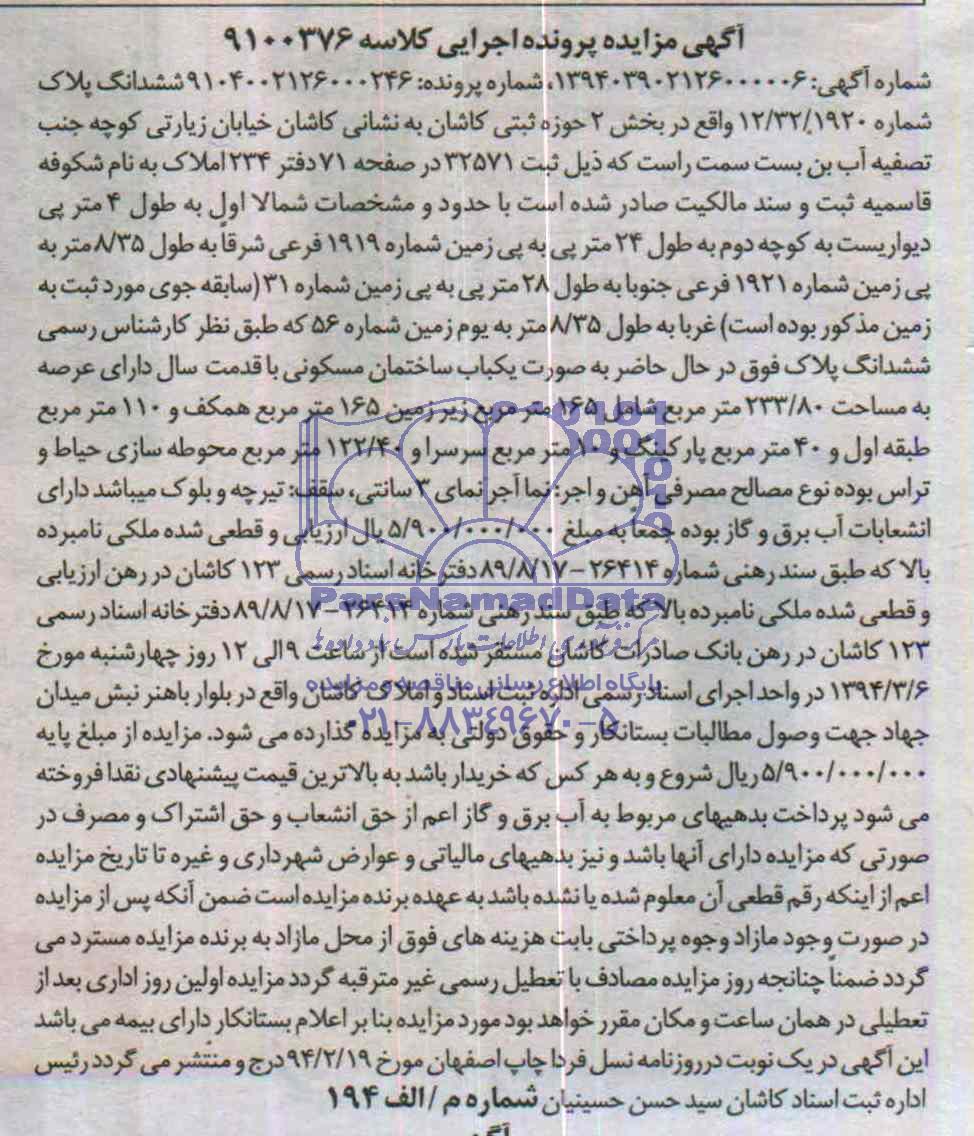 آگهی مزایده پرونده اجرایی کلاسه ۹۱۰۰۳۷۶
شماره آگهی: ۱۳۹۴۰۳۹۰۲۱۲۶۰۰۰۰۰۶، شماره پرونده: ۹۱۰۴۰۰۲۱۲۶۰۰۰۲۴۶ ششدانگ پلاک
شماره ۱۲/۳۲/۱۹۲۰ واقع در بخش ۲ حوزه ثبتی کاشان به نشانی کاشان خیابان زیارتی کوچه جنب
تصفیه آب بن بست سمت راست که ذیل ثبت ۳۲۵۷۱ در صفحه ۷۱ دفتر ۲۳۴ املاک به نام شکوفه
قاسمیه ثبت و سند مالکیت صادر شده است با حدود و مشخصات شمالا اول به طول ۴ متر پی
دیواریست به کوچه دوم به طول ۲۴ متر پی به پی زمین شماره ۱۹۱۹ فرعی شرقاً به طول ۸/۳۵ متر به
پی زمین شماره ۱۹۲۱ فرعی جنوبا به طول ۲۸ متر پی به پی زمین شماره ۳۱ (سابقه جوی مورد ثبت به
زمین مذکور بوده است) غربا به طول ۸/۳۵ متر به یوم زمین شماره ۵۶ که طبق نظر کارشناس رسمی
ششدانگ پلاک فوق در حال حاضر به صورت یکباب ساختمان مسکونی با قدمت سال دارای عرصه
به مساحت ۲۳۳/۸۰ متر مربع شامل ۱۶۵ متر مربع زیر زمین ۱۶۵ متر مربع همکف و ۱۱۰ متر مربع
طبقه اول و ۴۰ متر مربع پارکینگ و ۱۰ متر مربع سرسرا و ۱۲۲/۴۰ متر مربع محوطه سازی حیاط و
تراس بوده نوع مصالح مصرفی آهن و اجر: نما آجر نمای ۳ سانتی، سقف: تیرچه و بلوک میباشد دارای
انشعابات آب برق و گاز بوده جمعاً به مبلغ ۵/۹۰۰/۰۰۰/۰۰۰ یال ارزیابی و قطعی شده ملکی نامبرده
بالا که طبق سند رهنی شماره ۲۶۴۱۴ – ۸۹/۸/۱۷ دفترخانه اسناد رسمی ۱۲۳ کاشان در رهن ارزیابی
و قطعی شده ملکی نامبرده بالا که طبق سند رهنی شماره ۲۶۴۱۴ – ۸۹/۸/۱۷ دفترخانه اسناد رسمی
۱۲۳ کاشان در رهن بانک صادرات کاشان مستقر شده است از ساعت ۹ الی ۱۲ روز چهارشنبه مورخ
۱۳۹۴/۳/۶ در واحد اجرای اسناد رسمی اداره ثبت اسناد و املاک کاشان واقع در بلوار باهنر نبش میدان
جهاد جهت وصول مطالبات بستانکار و حقوق دولتی به مزایده گذارده می شود. مزایده از مبلغ پایه
۵/۹۰۰/۰۰۰/۰۰۰ ریال شروع و به هر کس که خریدار باشد به بالاترین قیمت پیشنهادی نقدا فروخته
می شود پرداخت بدهیهای مربوط به آب برق و گاز اعم از حق انشعاب و حق اشتراک و مصرف در
صورتی که مزایده دارای آنها باشد و نیز بدهیهای مالیاتی و عوارض شهرداری و غیره تا تاریخ مزایده
اعم از اینکه رقم قطعی آن معلوم شده یا نشده باشد به عهده برنده مزایده است ضمن آنکه پس از مزایده
در صورت وجود مازاد وجوه پرداختی بابت هزینه های فوق از محل مازاد به برنده مزایده مسترد می
گردد ضمناً چنانجه روز مزایده مصادف با تعطیل رسمی غیر مترقبه گردد مزایده اولین روز اداری بعد از
تعطیلی در همان ساعت و مکان مقرر خواهد بود مورد مزایده بنا بر اعلام بستانکار دارای بیمه می باشد
این آگهی در یک نوبت درروزنامه نسل فردا چاپ اصفهان مورخ ۹۴/۲/۱۹ درج و منتشر می گردد رئیس
اداره ثبت اسناد کاشان سید حسن حسینیان شماره م /الف ۱۹۴
ParsNamadData
مرکز فرآوری اطلاعات پارس نماد داده ها
پایگاه اطلاع رسانی مناقصه و مزایده
۰۲۱-۸۸۳۴۹۶۷۰-۵